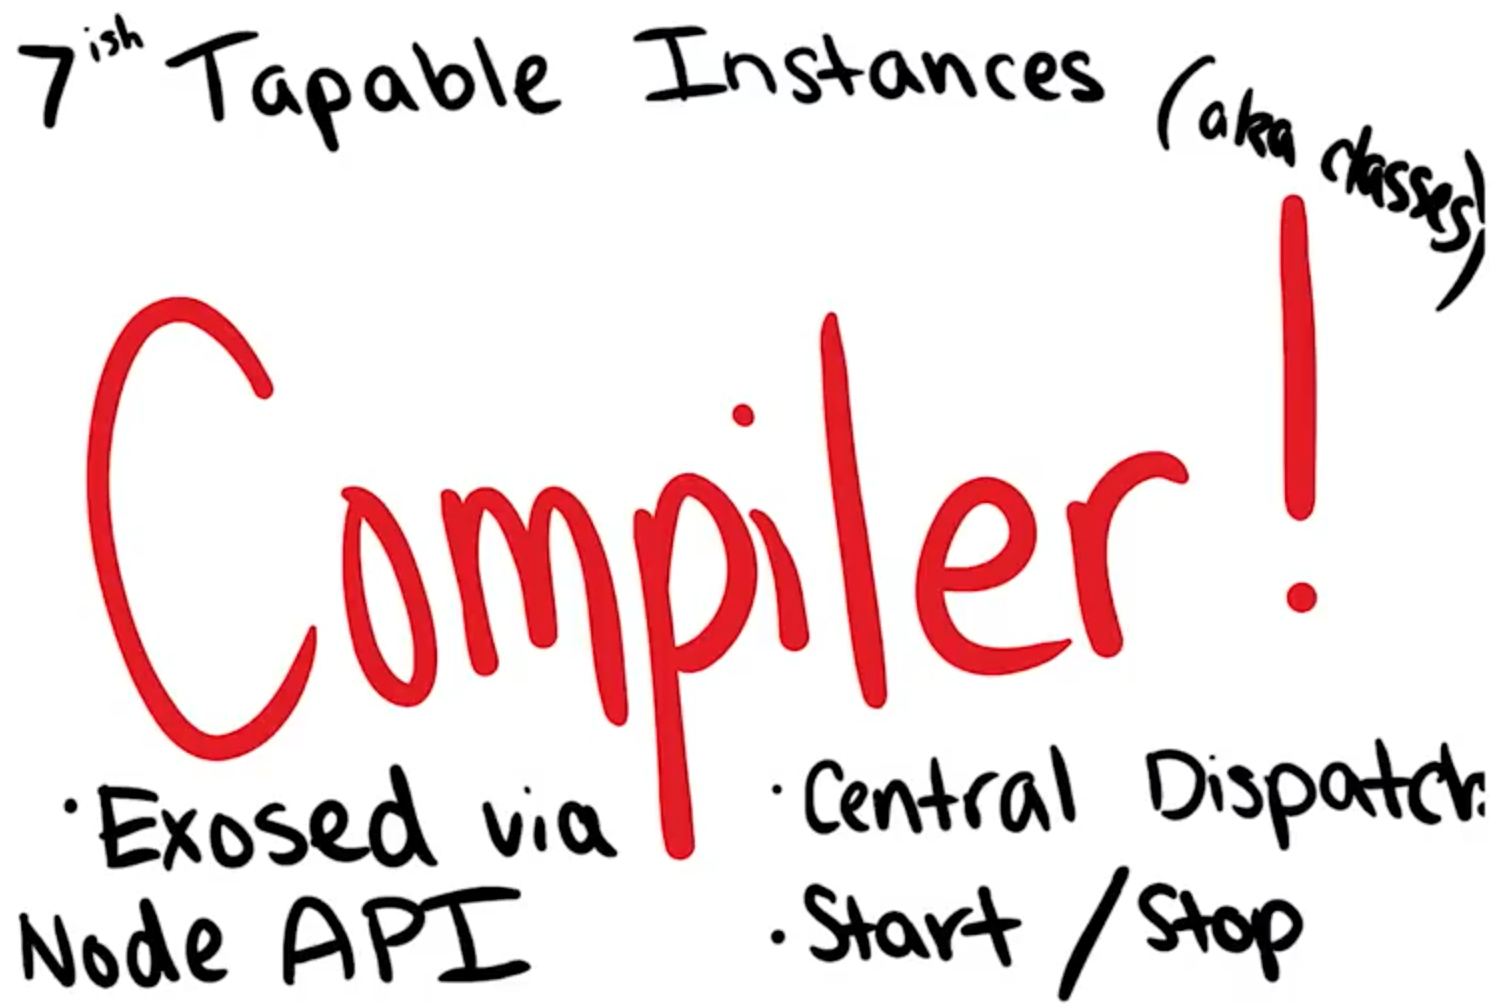 7ish Tapable Instances (aka classes)
Compiler!
· Exosed via
Node API
· Central Dispatch
· Start / Stop